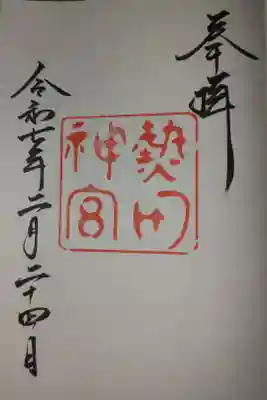 奉拝
熱田
神宮
令和七年二月二十四日